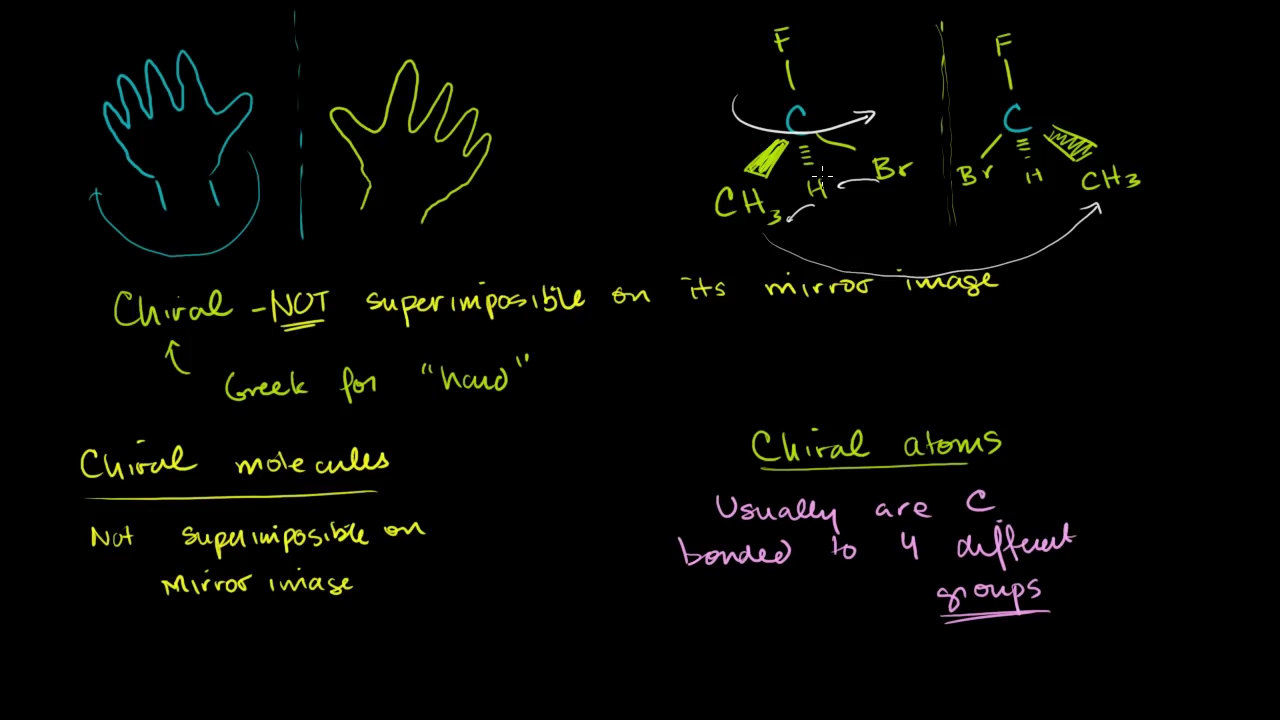 F
C
CH3
H
Br
F
C
Br
H
CH3
Chiral - NOT superimposible on its mirror image
Greek for "hand"
Chiral molecules
Not superimposible on
Mirror image
Chiral atoms
Usually are C
bonded to 4 different
groups